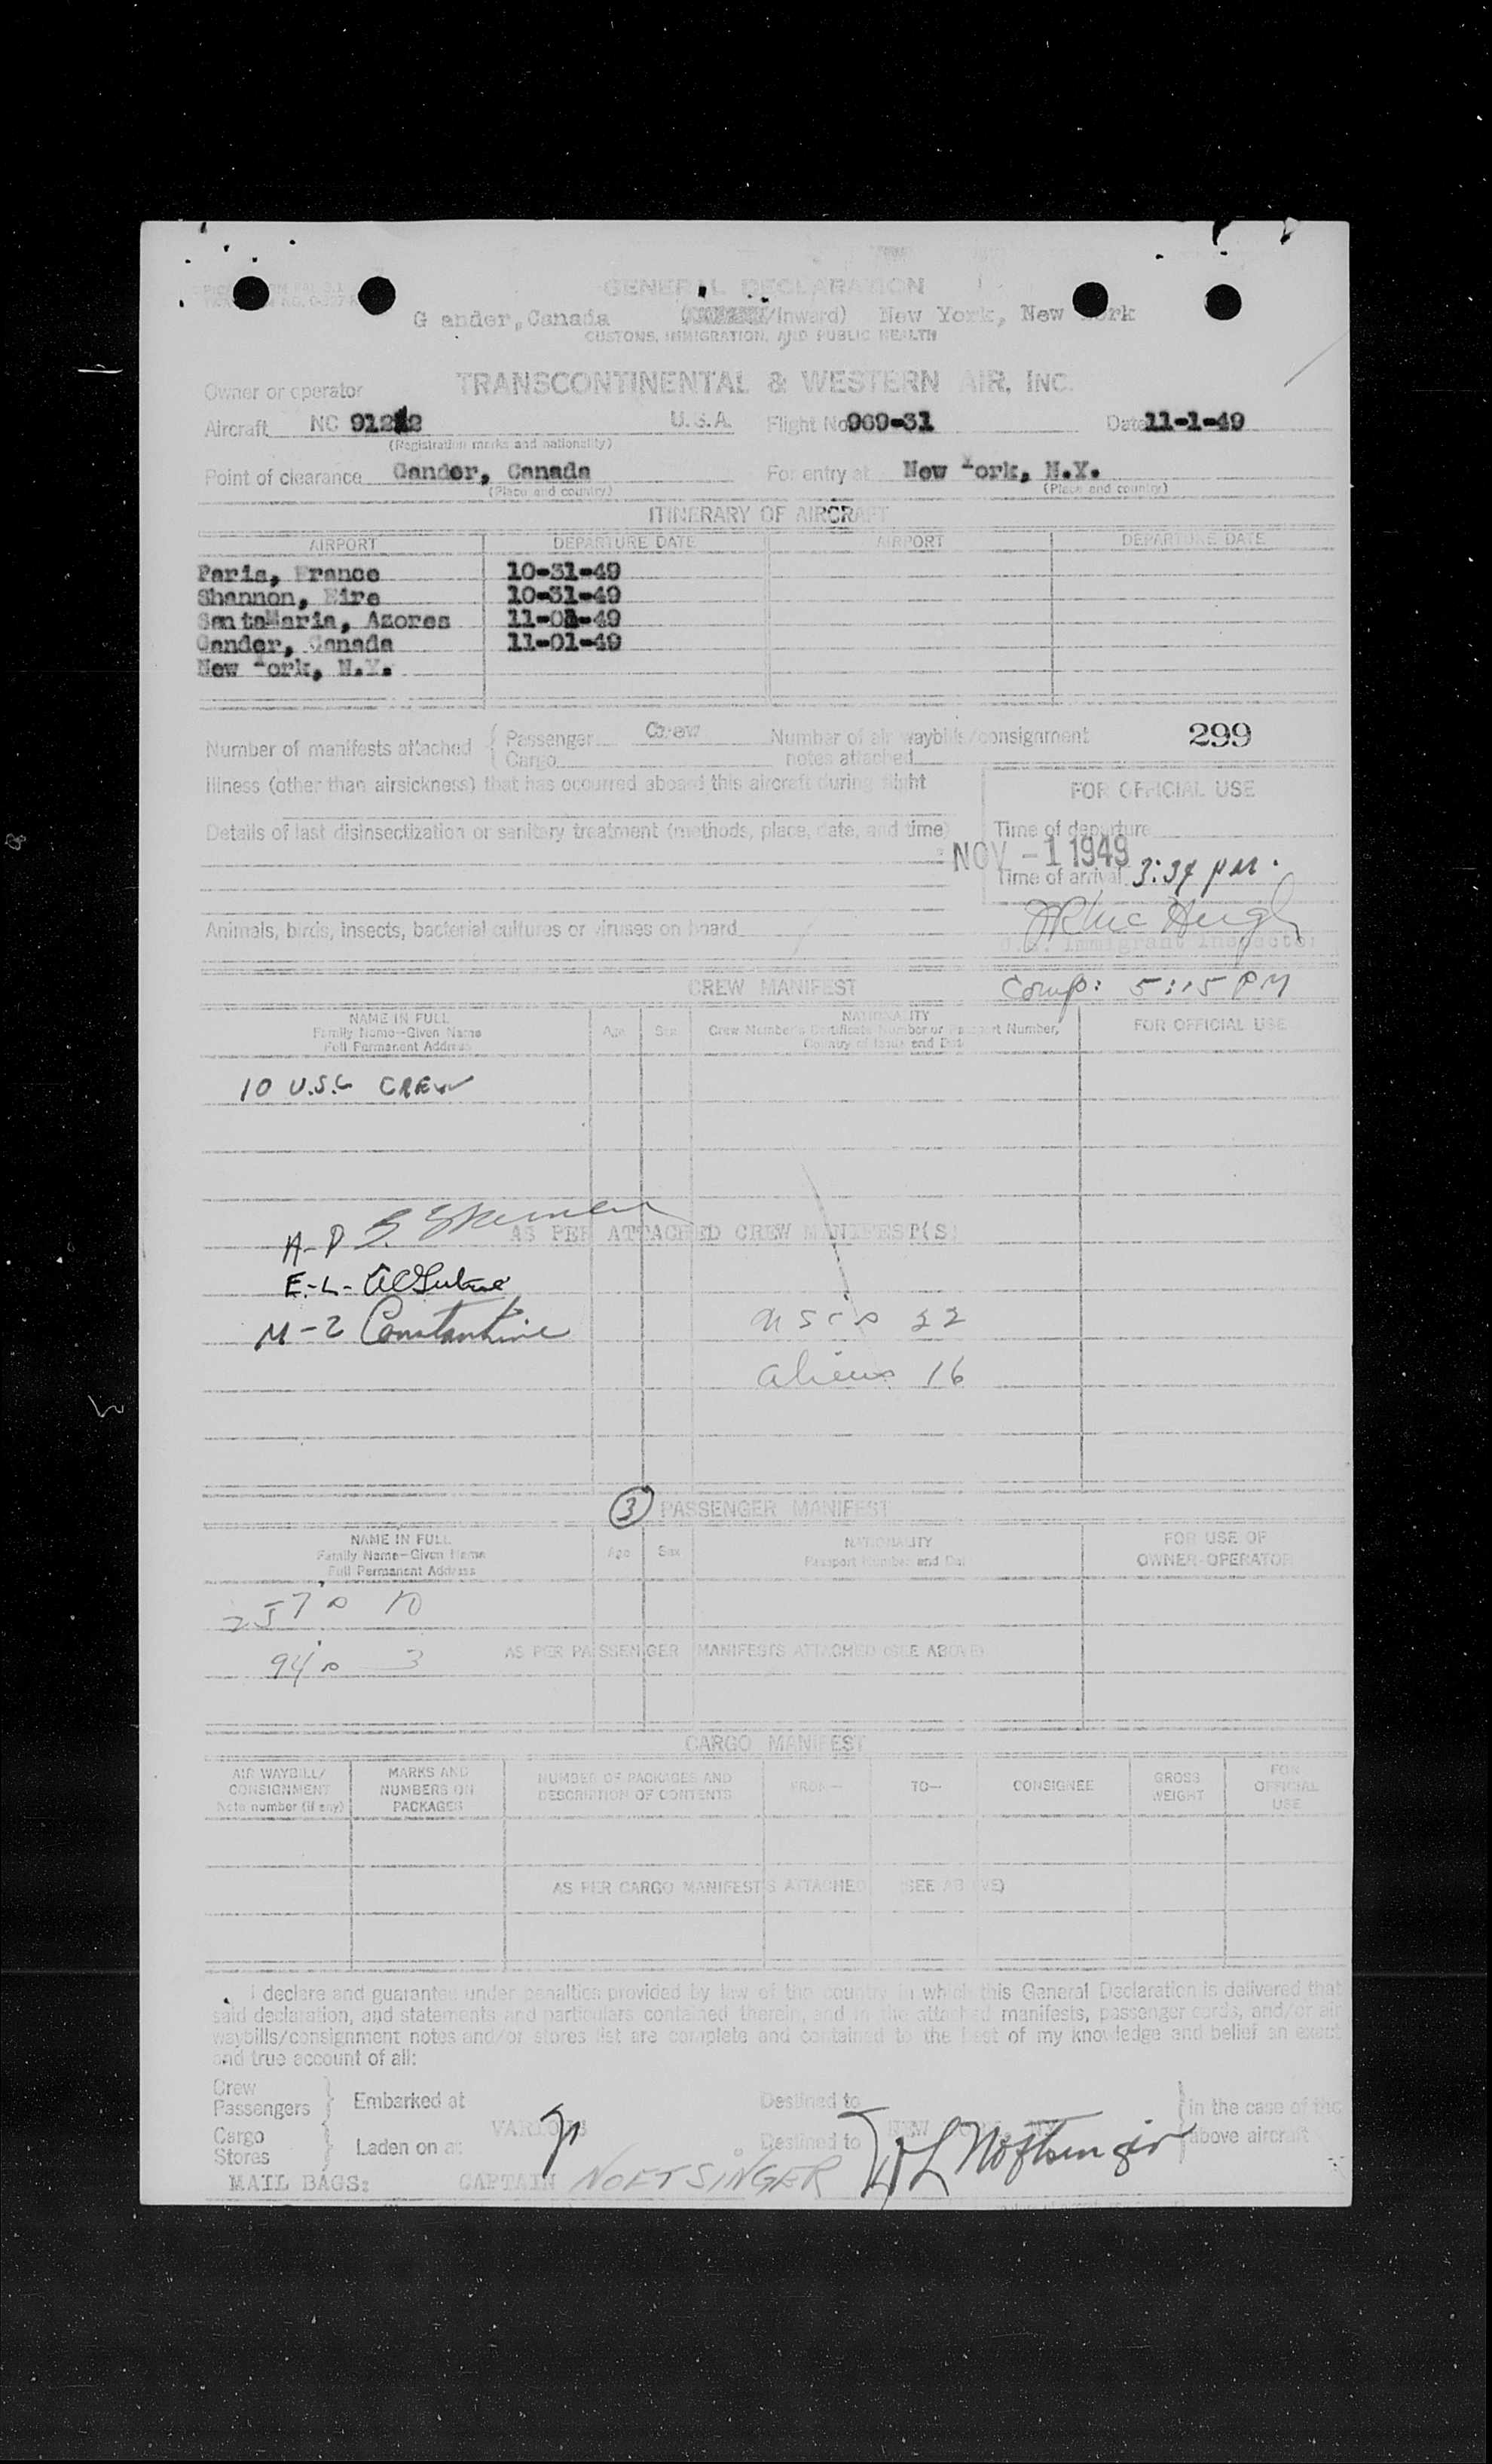 GENERAL DECLARATION
G ander, Canada (/Inward) New York, New ork
CUSTOMS, IMMIGRATION, AND PUBLIC HEALTH
Owner or operator TRANSCONTINENTAL & WESTERN AIR, INC.
Aircraft NC 91212 U.S.A. Flight No 969-31 Date 11-1-49
(Registration marks and nationality)
Point of clearance Gander, Canada For entry at New York, N.Y.
(Place and country) (Place and country)
ITINERARY OF AIRCRAFT
AIRPORT DEPARTURE DATE AIRPORT DEPARTURE DATE
Paris, France 10-31-49
Shannon, Eire 10-31-49
SantaMaria, Azores 11-01-49
Gander, Canada 11-01-49
New York, N.Y.
Number of manifests attached { Passenger Crew Number of air waybills/consignment 299
Cargo notes attached
Illness (other than airsickness) that has occurred aboard this aircraft during flight
FOR OFFICIAL USE
Details of last disinsectization or sanitary treatment (methods, place, date, and time)
Time of departure
NOV -1 1949
Time of arrival 3:34 PM.
Animals, birds, insects, bacterial cultures or viruses on board
U.S. Immigrant Inspector
Comp: 5:15 PM
CREW MANIFEST
NAME IN FULL
Family Name—Given Name
Full Permanent Address
Age Sex
NATIONALITY
Crew Member's Certificate Number or Passport Number,
Country of Issue and Date
FOR OFFICIAL USE
10 U.S.C CREW
A-P
AS PER ATTACHED CREW MANIFEST(S)
E.-L-
M-2 Constantine
USCs 22
aliens 16
3 PASSENGER MANIFEST
NAME IN FULL
Family Name—Given Name
Full Permanent Address
Age Sex
NATIONALITY
Passport Number and Date
FOR USE OF
OWNER-OPERATOR
257 10
94 3
AS PER PASSENGER MANIFESTS ATTACHED (SEE ABOVE)
CARGO MANIFEST
AIR WAYBILL/
CONSIGNMENT
Note number (if any)
MARKS AND
NUMBERS ON
PACKAGES
NUMBER OF PACKAGES AND
DESCRIPTION OF CONTENTS
FROM—
TO—
CONSIGNEE
GROSS
WEIGHT
FOR
OFFICIAL
USE
AS PER CARGO MANIFESTS ATTACHED (SEE ABOVE)
I declare and guarantee under penalties provided by law of the country in which this General Declaration is delivered that
said declaration, and statements and particulars contained therein, and in the attached manifests, passenger cards, and/or air
waybills/consignment notes and/or stores list are complete and contained to the best of my knowledge and belief an exact
and true account of all:
Crew
Passengers } Embarked at Destined to } in the case of the
VARIOUS NEW
Cargo
Stores } Laden on at Destined to above aircraft
MAIL BAGS: CAPTAIN NOFTSINGER Noftsinger